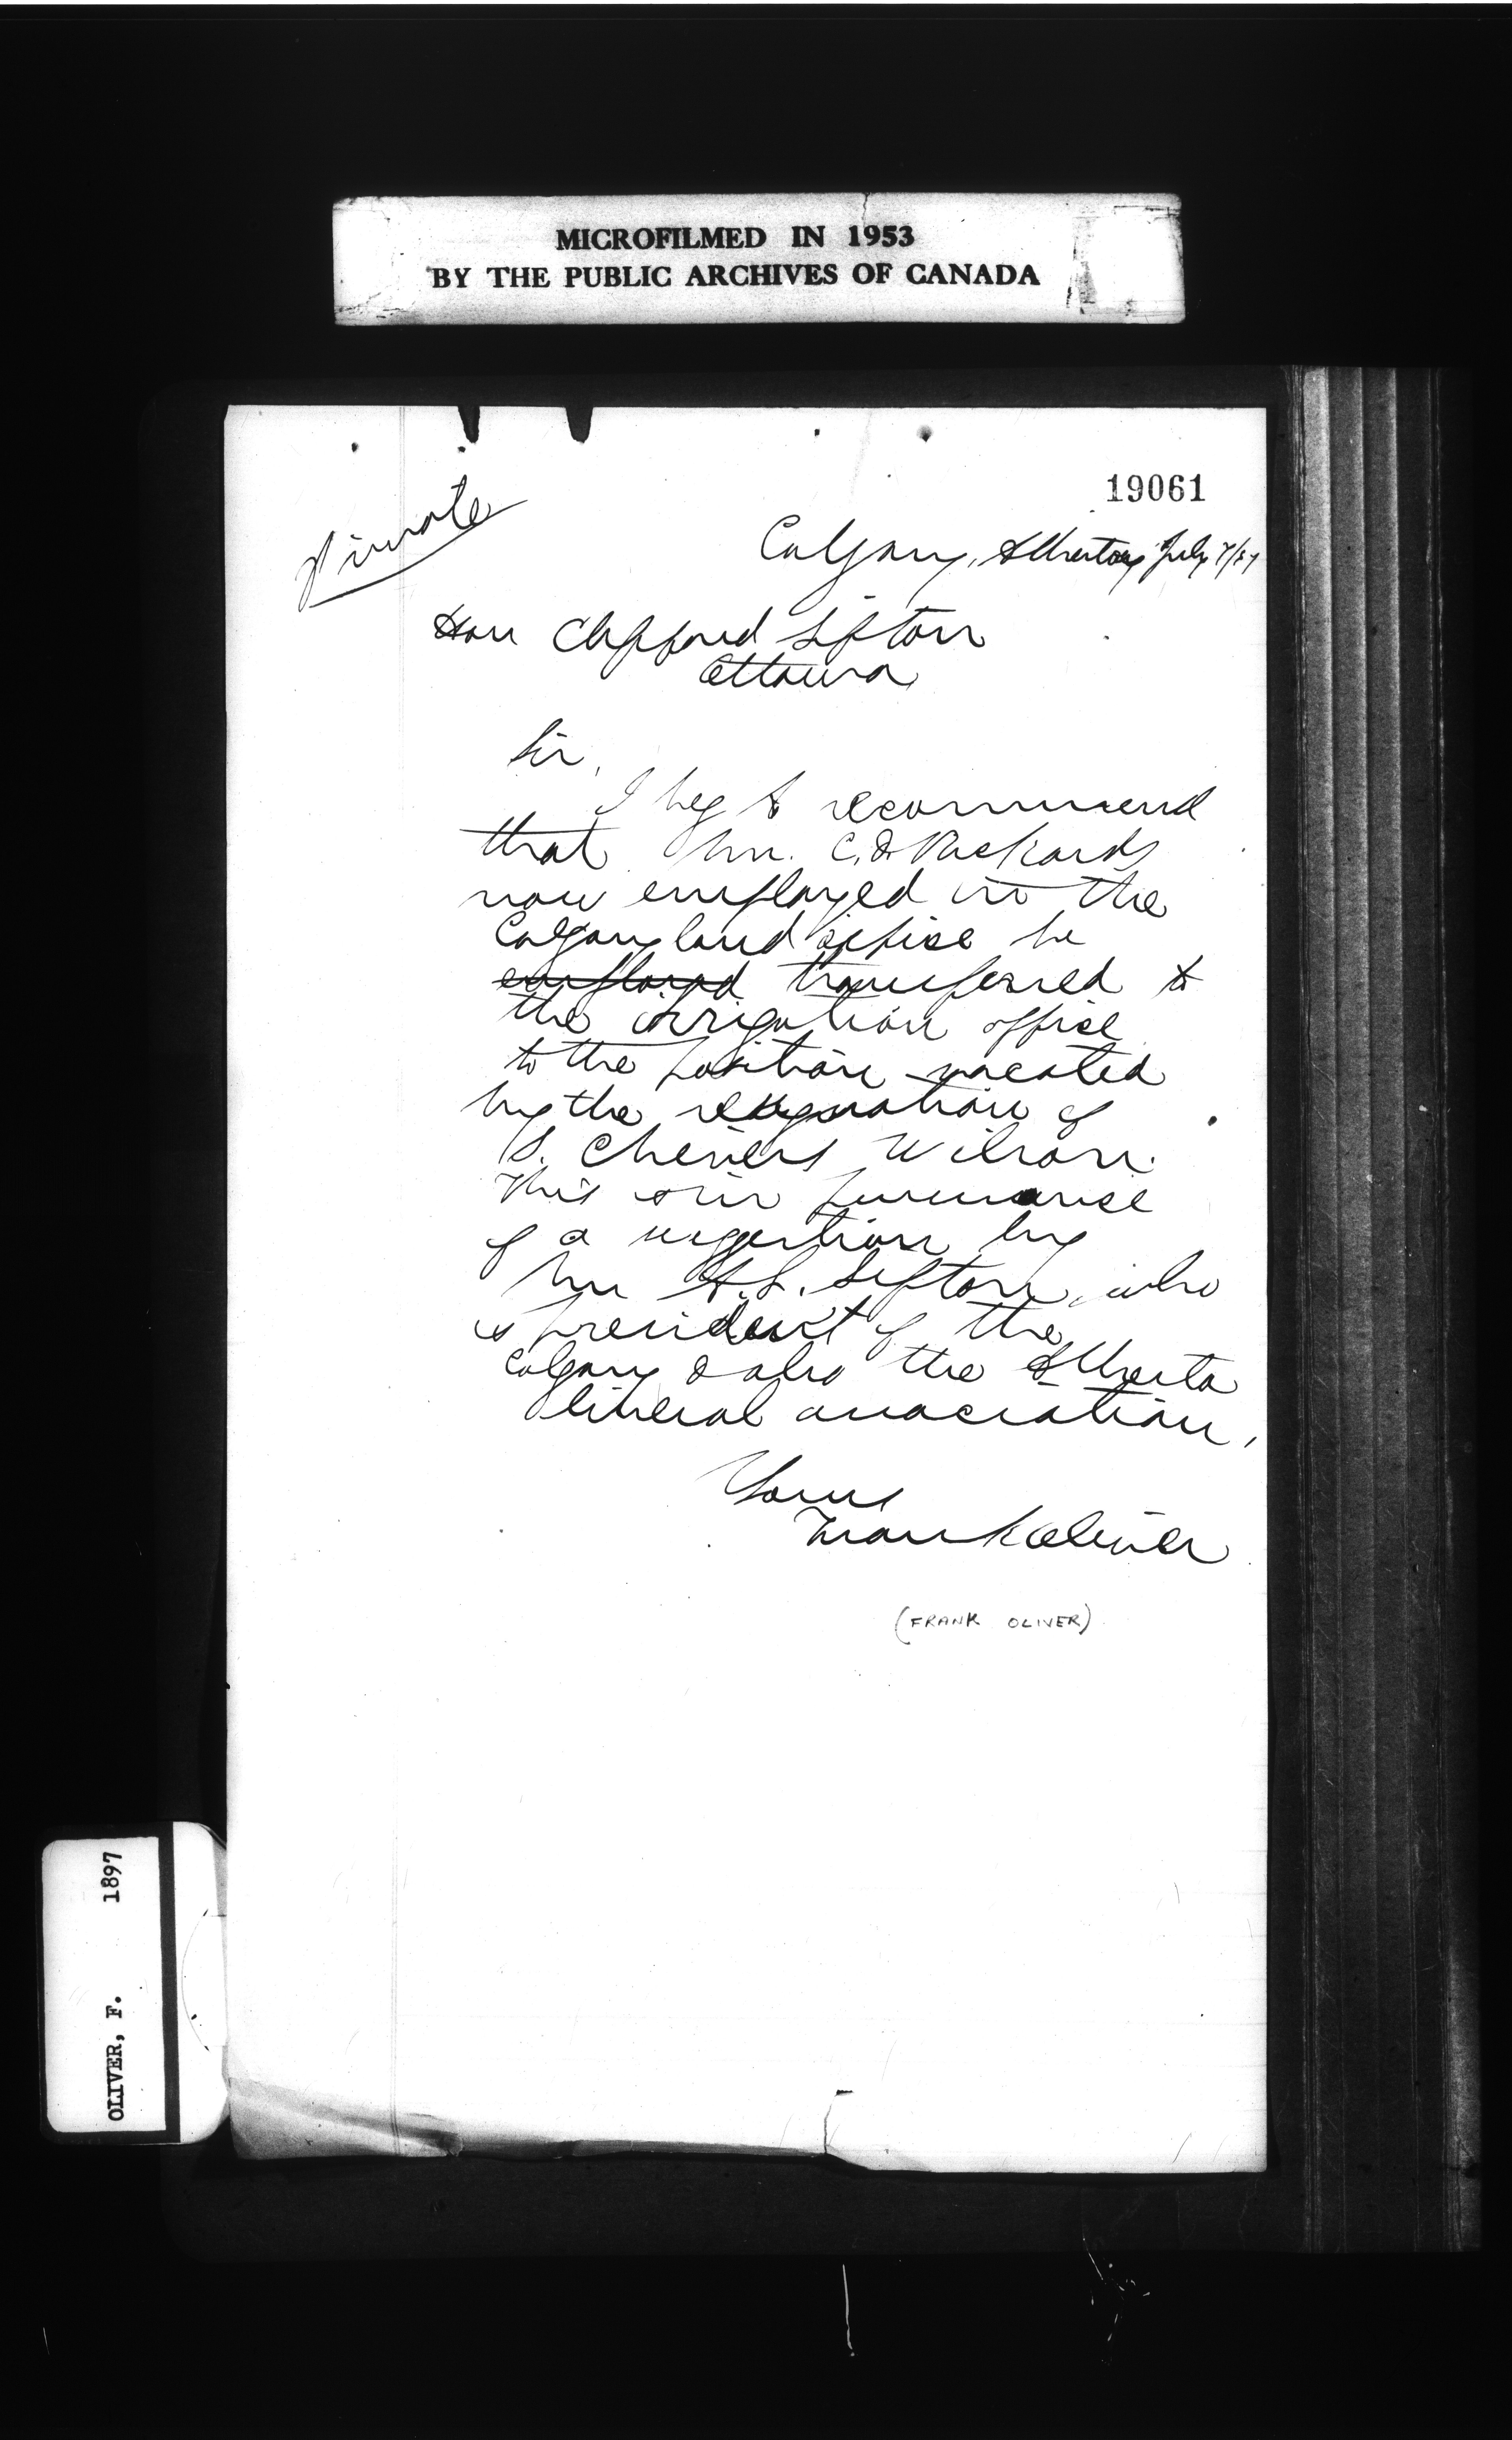 MICROFILMED IN 1953
BY THE PUBLIC ARCHIVES OF CANADA
19061
Private
Calgary, Alberta, July 7/97
Hon Clifford Sifton
Ottawa
Sir,
I beg to recommend
that Mr. C. Packard
now employed in the
Calgary land office be
employed transferred to
the irrigation office
to the position vacated
by the resignation of
S. Chevers Wilson.
This is in pursuance
of a suggestion by
Mr A. L. Sifton, who
is president of the
Calgary & also the Alberta
liberal association,
Yours
Frank Oliver
(FRANK OLIVER)
OLIVER, F. 1897